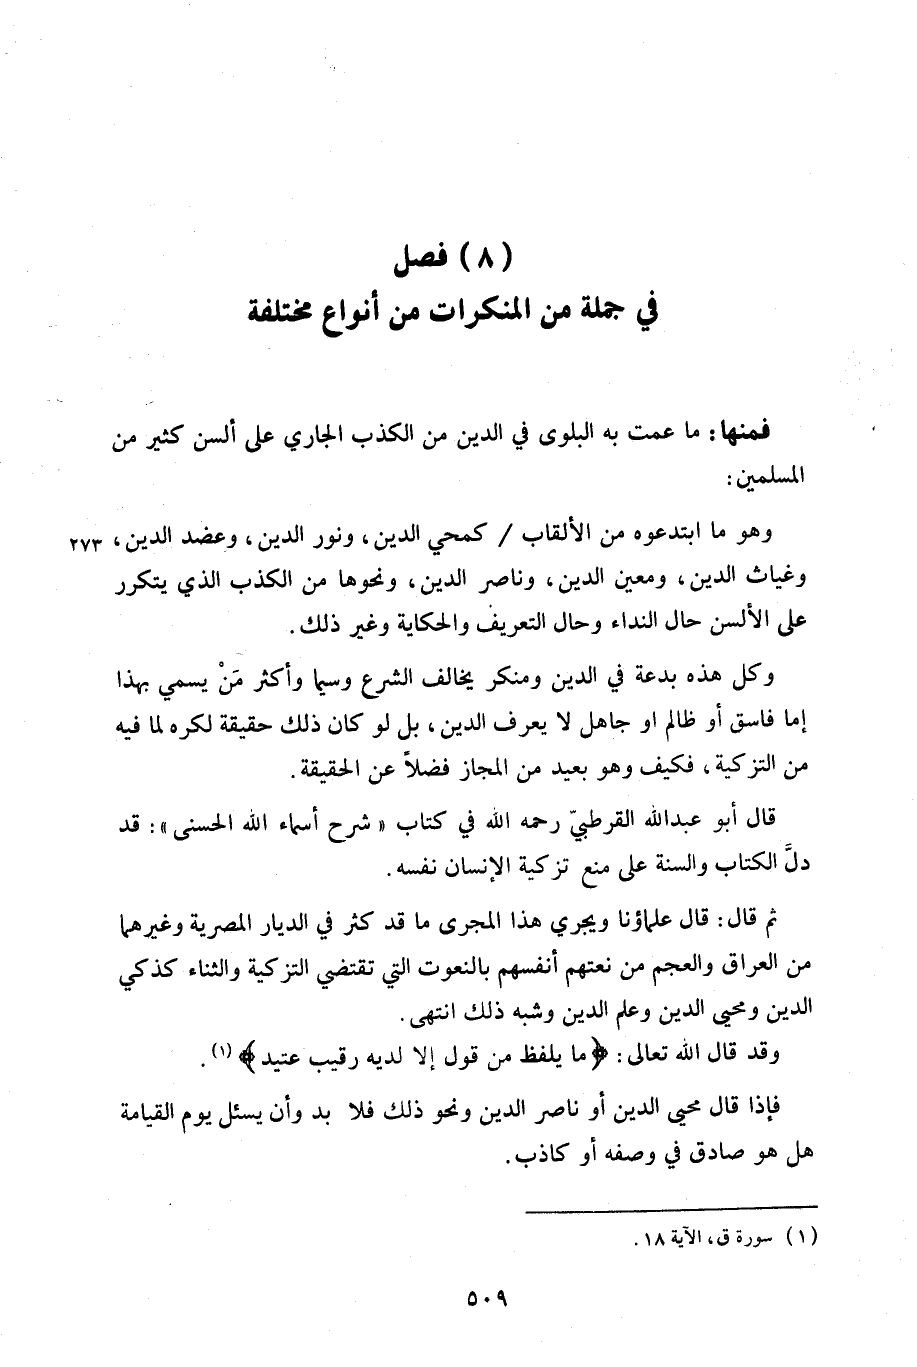 (٨) فصل
في جملة من المنكرات من أنواع مختلفة
فمنها: ما عمت به البلوى في الدين من الكذب الجاري على ألسن كثير من
المسلمين:
وهو ما ابتدعوه من الألقاب / كمحي الدين، ونور الدين، وعضد الدين، ٢٧٣
وغياث الدين، ومعين الدين، وناصر الدين، ونحوها من الكذب الذي يتكرر
على الألسن حال النداء وحال التعريف والحكاية وغير ذلك.
وكل هذه بدعة في الدين ومنكر يخالف الشرع وسيما وأكثر مَنْ يسمي بهذا
إما فاسق أو ظالم او جاهل لا يعرف الدين، بل لو كان ذلك حقيقة لكره لما فيه
من التزكية، فكيف وهو بعيد من المجاز فضلاً عن الحقيقة.
قال أبو عبدالله القرطبيّ رحمه الله في كتاب «شرح أسماء الله الحسنى»: قد
دلَّ الكتاب والسنة على منع تزكية الإنسان نفسه.
ثم قال: قال علماؤنا ويجري هذا المجرى ما قد كثر في الديار المصرية وغيرهما
من العراق والعجم من نعتهم أنفسهم بالنعوت التي تقتضي التزكية والثناء كذكي
الدين ومحيي الدين وعلم الدين وشبه ذلك انتهى.
وقد قال الله تعالى: ﴿ما يلفظ من قول إلا لديه رقيب عتيد﴾(١).
فإذا قال محيي الدين أو ناصر الدين ونحو ذلك فلا بد وأن يسئل يوم القيامة
هل هو صادق في وصفه أو كاذب.
(١) سورة ق، الآية ١٨.
٥٠٩